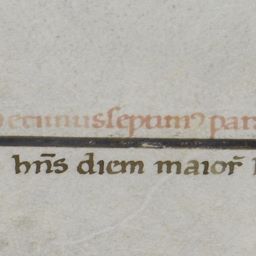 ecimusſeptimꝰ par
hn̅s diem maior̃